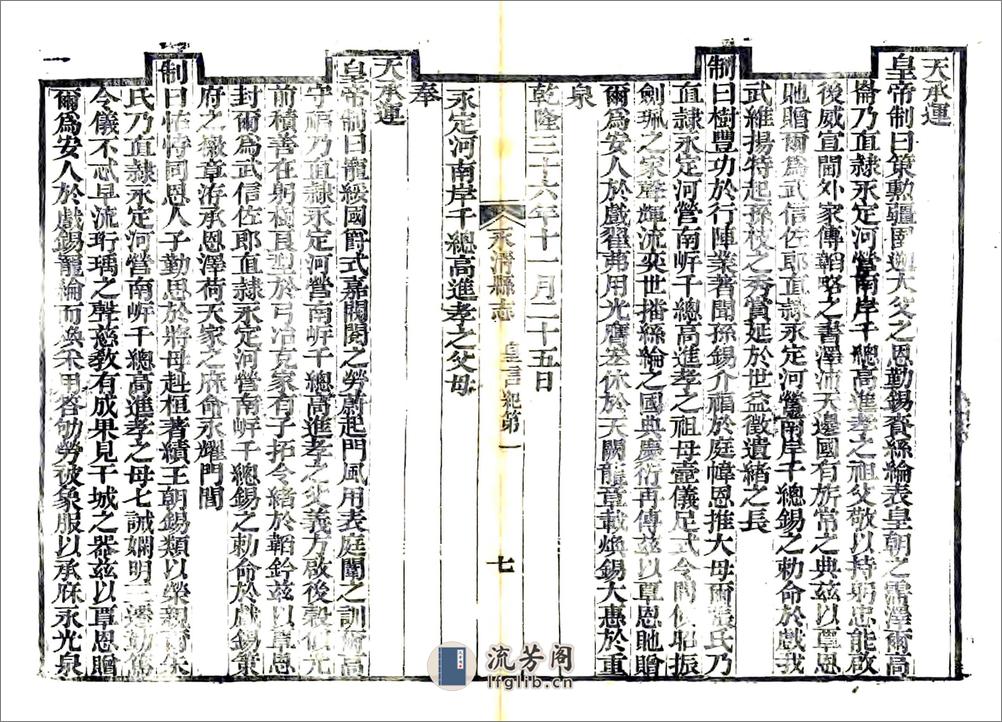 天承運
皇帝制曰策勲疆圉遡大父之恩勤錫賚絲綸表皇朝之霈澤爾高
倫乃直隸永定河營南岸千總高進孝之祖父敬以持躬忠能啟
後威宣閫外家傳韜略之書澤沛天邊國有旂常之典茲以覃恩
貤贈爾為武信佐郎直隸永定河營南岸千總錫之勅命於戲我
武維揚特起孫枝之秀賞延於世益徵遺緒之長
制曰樹豐功於行陣業著聞孫錫介福於庭幃恩推大母爾張氏乃
直隸永定河營南岸千總高進孝之祖母壼儀足式令聞攸昭振
劍珮之家聲輝流奕世播絲綸之國典慶衍再傳茲以覃恩貤贈
爾為安人於戲翟茀用光膺宏休於天闕龍章載煥錫大惠於重
泉
乾隆三十六年十一月二十五日
永清縣志 皇言紀第一 七
永定河南岸千總高進孝之父母
奉
天承運
皇帝制曰寵綏國爵式嘉閥閱之勞蔚起門風用表庭闈之訓爾高
守福乃直隸永定河營南岸千總高進孝之父義方啟後穀似光
前積善在躬樹良型於弓冶克家有子拓令緒於韜鈐茲以覃恩
封爾為武信佐郎直隸永定河營南岸千總錫之勅命於戲錫策
府之徽章洊承恩澤荷天家之庥命永耀門閭
制曰怙恃同恩人子勤思於將母赳桓著績王朝錫類以榮親爾朱
氏乃直隸永定河營南岸千總高進孝之母七誡嫻明三遷勤篤
令儀不忒早流珩瑀之聲慈教有成果見干城之器茲以覃恩贈
爾為安人於戲錫龍綸而煥采用答劬勞被象服以承庥永光泉
流芳阁
lfglib.cn